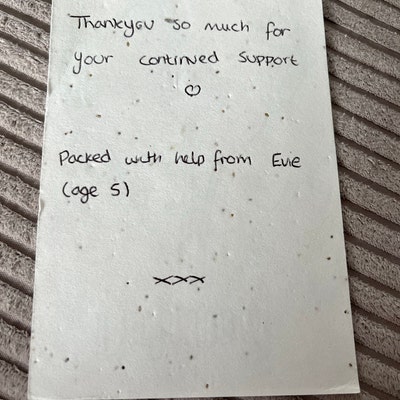 Thankyou so much for
your continued support
♡
Packed with help from Evie
(age 5)
xxx